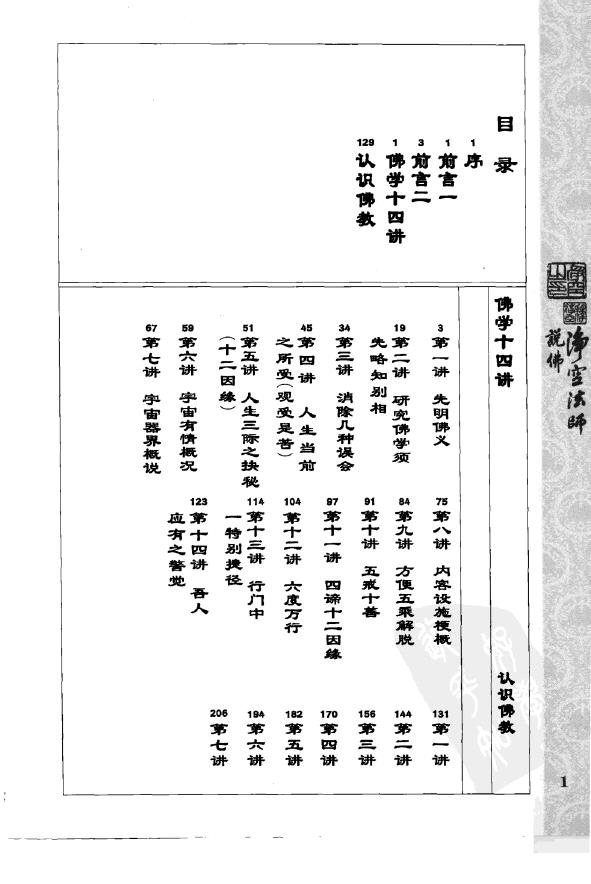 目录
1 序
1 前言一
3 前言二
1 佛学十四讲
129 认识佛教
佛学十四讲
3 第一讲 先明佛义
19 第二讲 研究佛学须
先略知别相
34 第三讲 消除几种误会
45 第四讲 人生当前
之所受(观受是苦)
51 第五讲 人生三际之抉秘
(十二因缘)
59 第六讲 宇宙有情概况
67 第七讲 宇宙器界概说
75 第八讲 内容设施梗概
84 第九讲 方便五乘解脱
91 第十讲 五戒十善
97 第十一讲 四谛十二因缘
104 第十二讲 六度万行
114 第十三讲 行门中
一特别捷径
123 第十四讲 吾人
应有之警觉
认识佛教
131 第一讲
144 第二讲
156 第三讲
170 第四讲
182 第五讲
194 第六讲
206 第七讲
净空法师
说佛
1